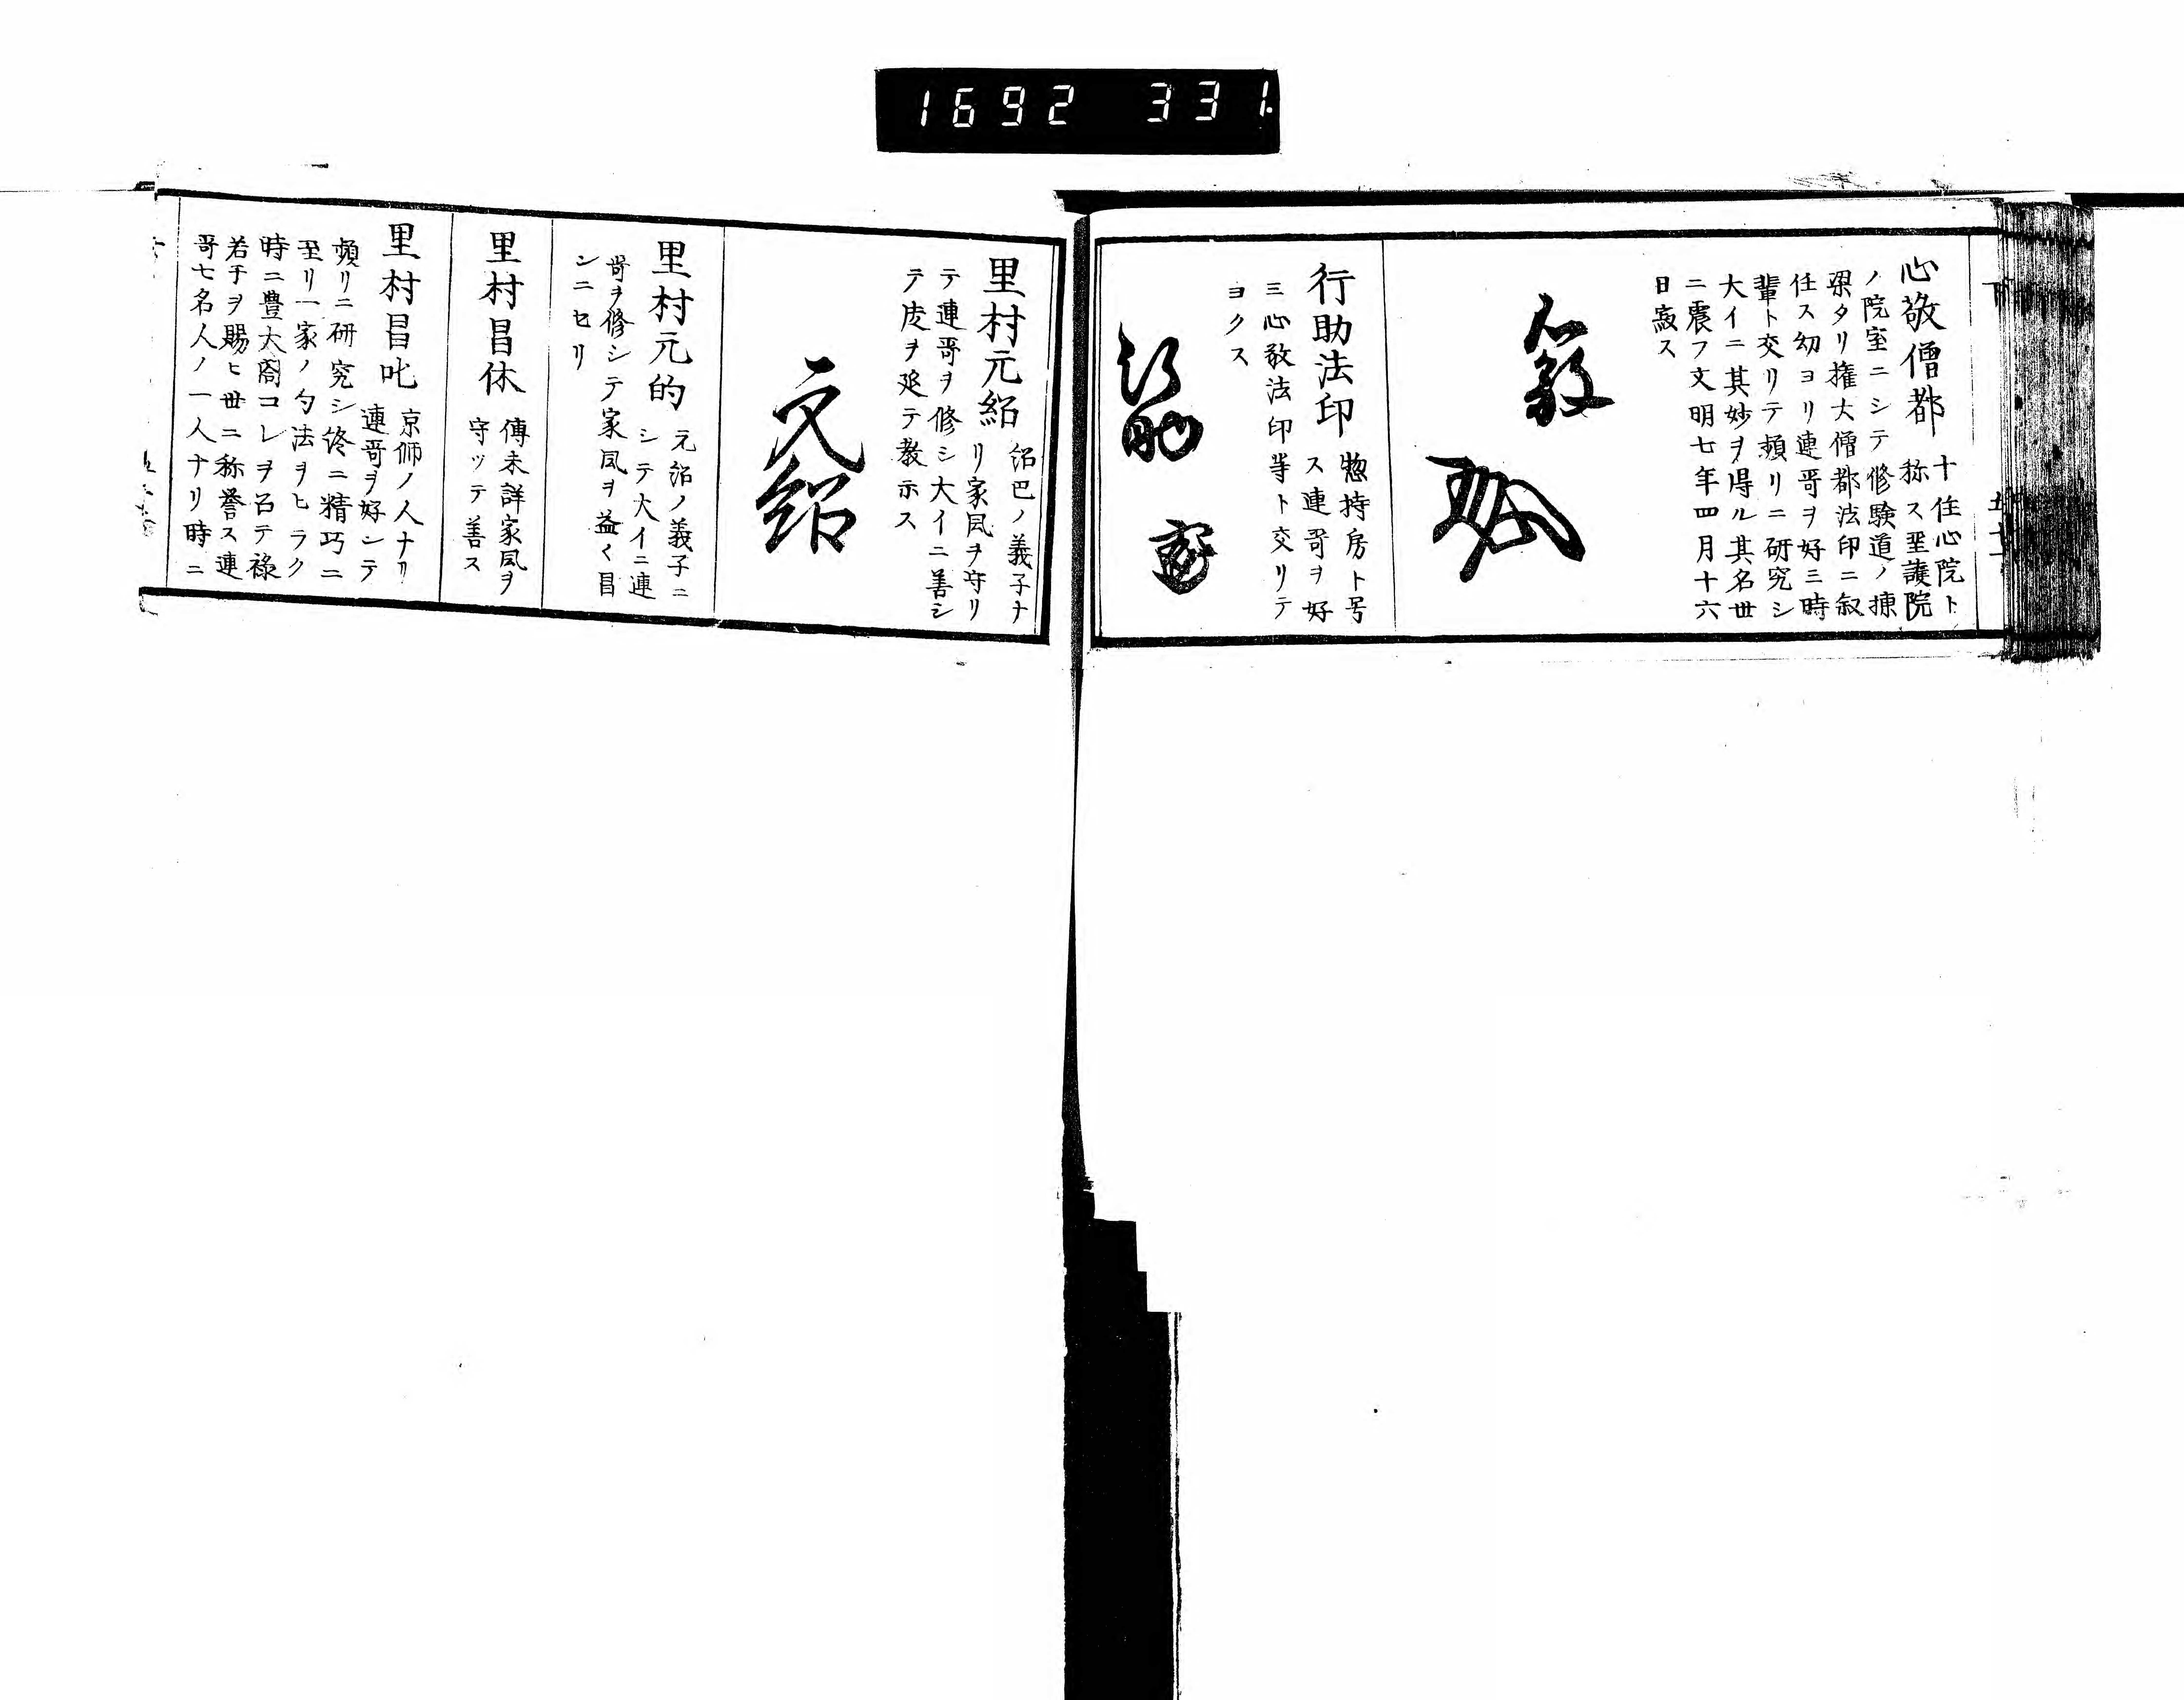 1692 331
下
心敬僧都 十住心院ト
称ス聖護院
ノ院室ニシテ修験道ノ棟
梁タリ権大僧都法印ニ叙
任ス幼ヨリ連哥ヲ好三時
輩ト交リテ頻リニ研究シ
大イニ其妙ヲ得ル其名世
ニ震フ文明七年四月十六
日寂ス
行助法印 惣持房ト号
ス連哥ヲ好
三心敬法印等ト交リテ
ヨクス
行助
里村元紹 紹巴ノ義子ナ
リ家風ヲ守リ
テ連哥ヲ修シ大イニ善シ
テ度ヲ延テ教示ス
元紹
里村元的 元紹ノ義子ニ
シテ大イニ連
哥ヲ修シテ家風ヲ益〱昌
ンニセリ
里村昌休 傳未詳家風ヲ
守ッテ善ス
里村昌叱 京師ノ人ナリ
連哥ヲ好ンテ
頻リニ研究シ終ニ精巧ニ
至リ一家ノ句法ヲヒラク
時ニ豊大閤コレヲ召テ禄
若干ヲ賜ヒ世ニ称誉ス連
哥七名人ノ一人ナリ時ニ